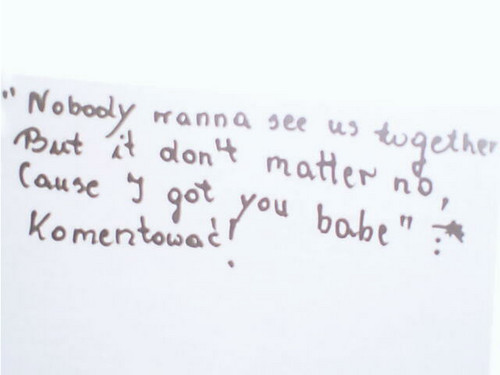 "Nobody wanna see us together
But it don't matter no,
Cause I got you babe" :*
Komentować!